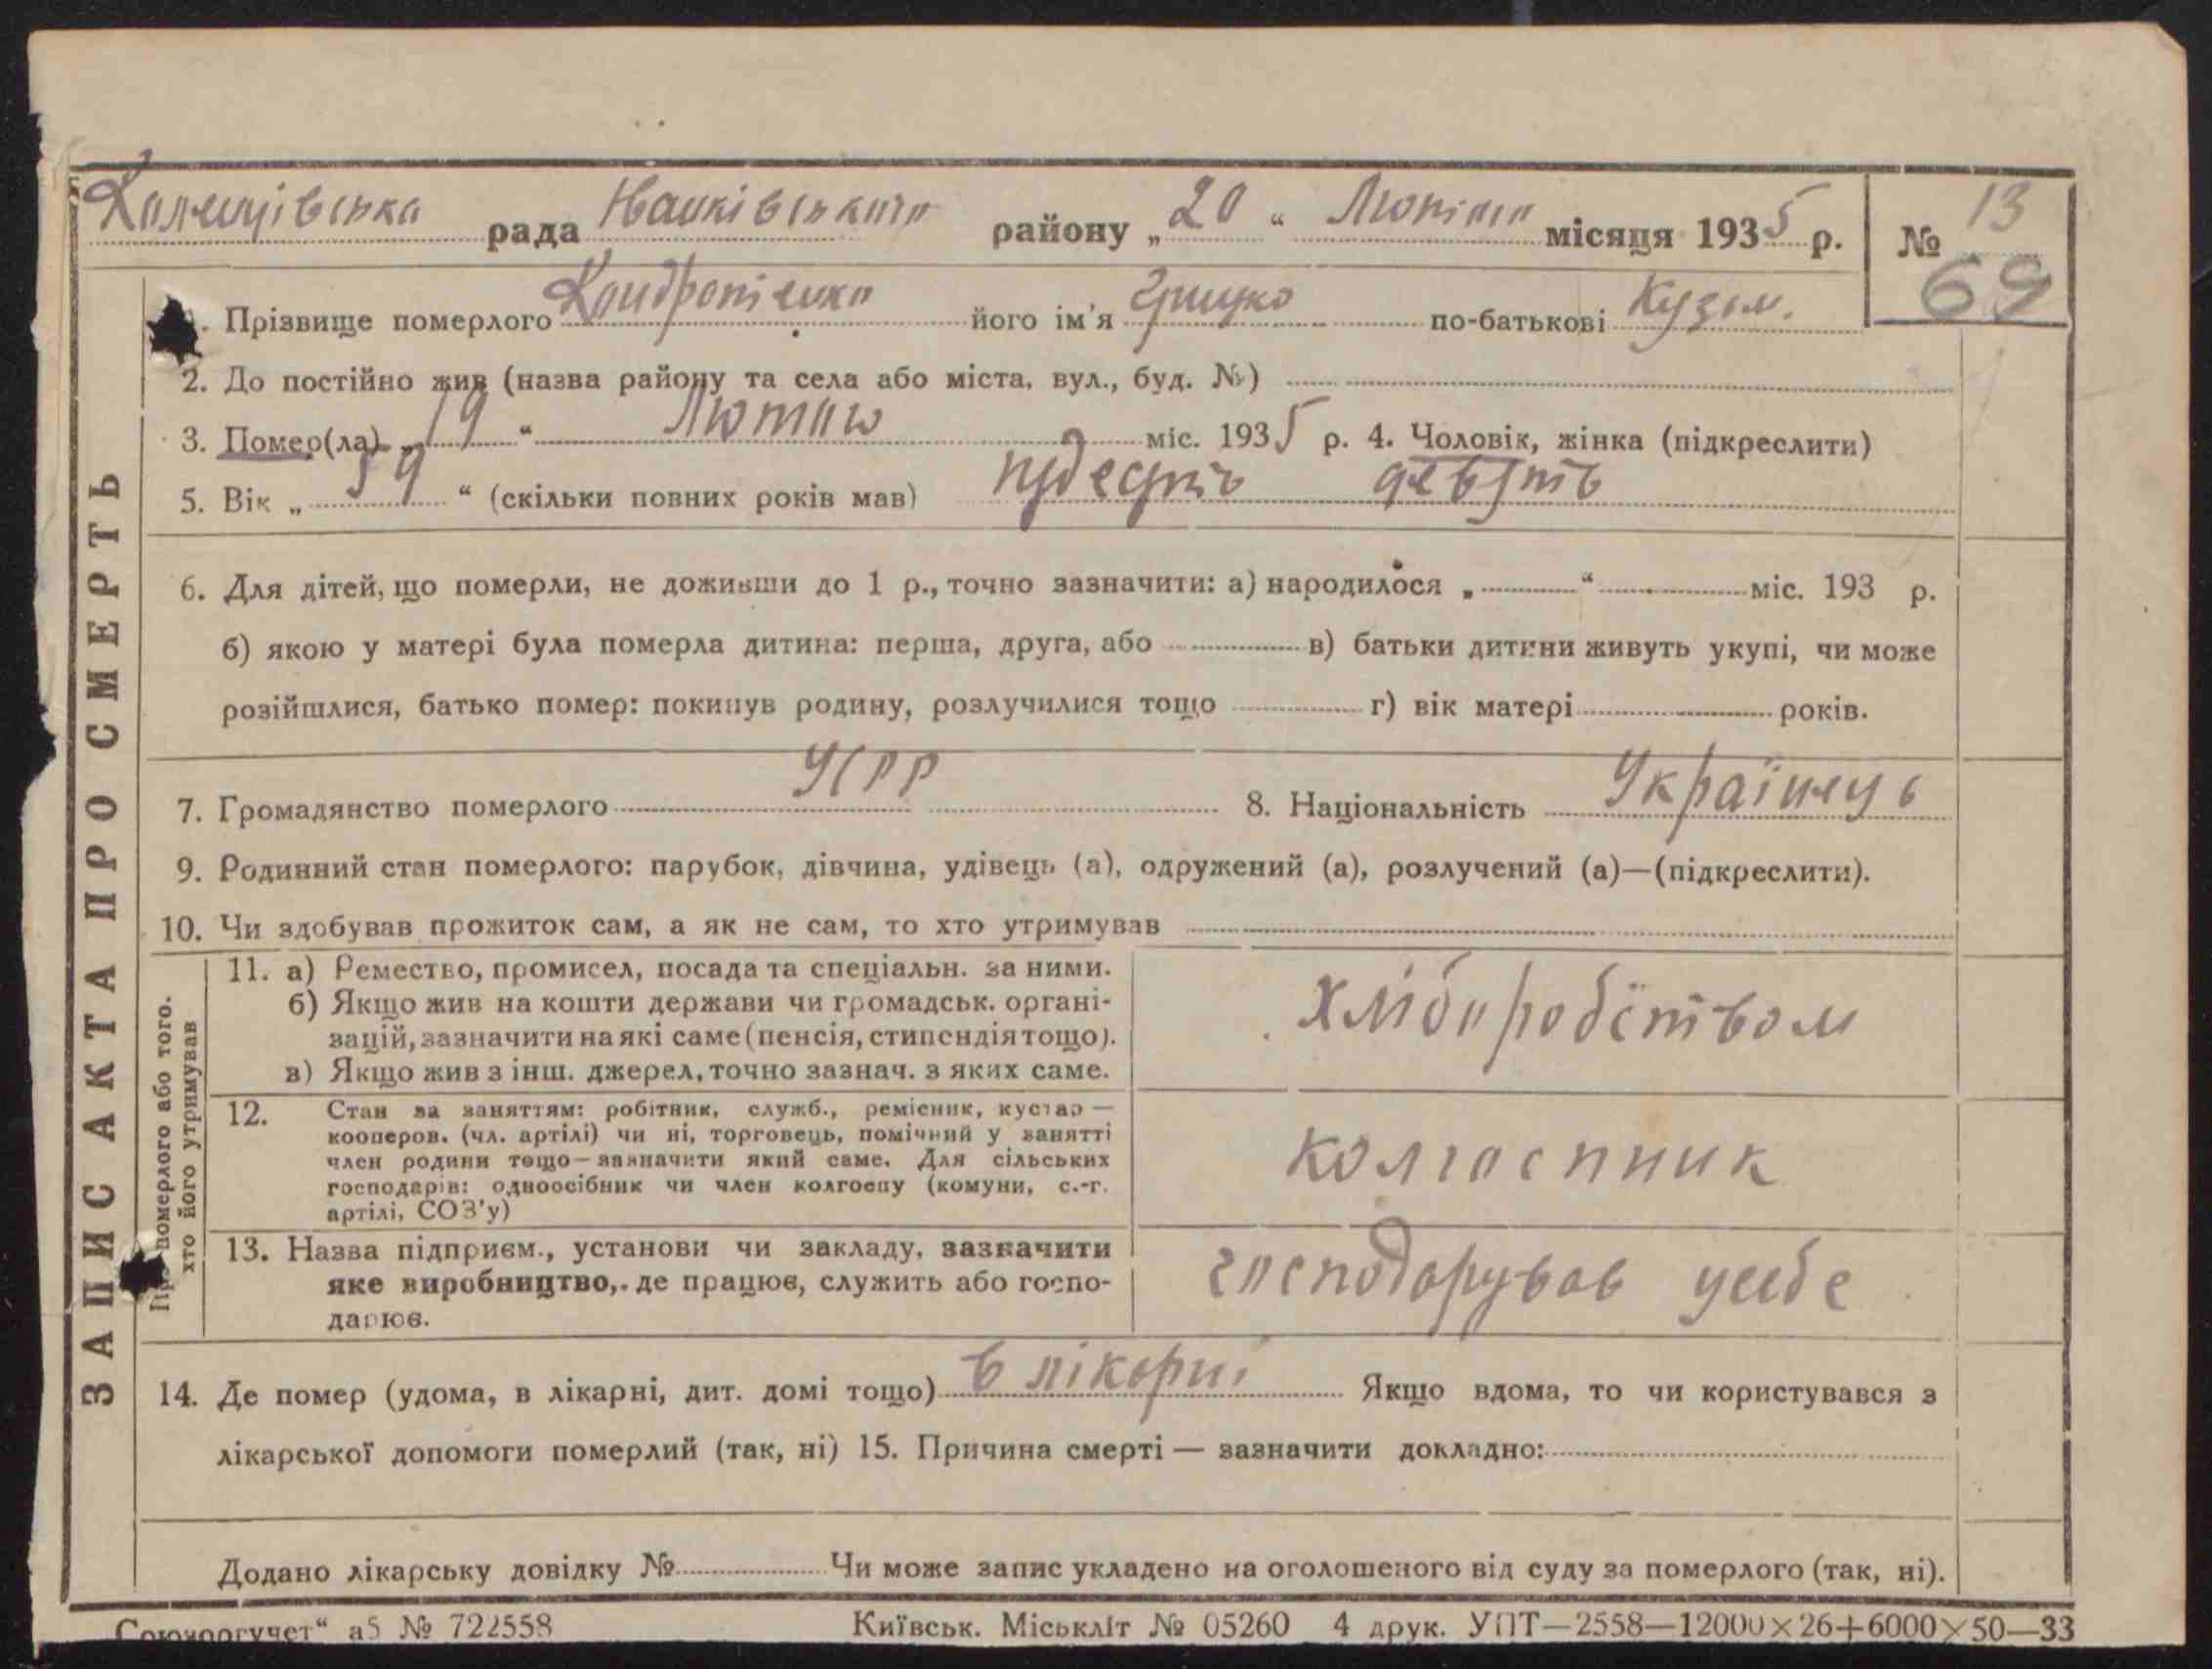 Калицівська рада району „20“ Лютого місяця 1935 р. № 13
69
Прізвище померлого Кондратенко його ім'я Грицко по-батькові Кузьм.
2. До постійно жив (назва району та села або міста, вул., буд. №)
3. Помер(ла) „19“ Лютого міс. 1935 р. 4. Чоловік, жінка (підкреслити)
5. Вік „59“ (скільки повних років мав) пʼядесять девять
6. Для дітей, що померли, не доживши до 1 р., точно зазначити: а) народилося „ “ міс. 193 р.
б) якою у матері була померла дитина: перша, друга, або в) батьки дитини живуть укупі, чи може
розійшлися, батько помер: покинув родину, розлучилися тощо г) вік матері років.
7. Громадянство померлого УСРР 8. Національність Українець
9. Родинний стан померлого: парубок, дівчина, удівець (а), одружений (а), розлучений (а)—(підкреслити).
10. Чи здобував прожиток сам, а як не сам, то хто утримував
11. а) Ремество, промисел, посада та спеціальн. за ними.
б) Якщо жив на кошти держави чи громадськ. органі-
зацій, зазначити на які саме (пенсія, стипендія тощо).
в) Якщо жив з інш. джерел, точно зазнач. з яких саме.
хліборобством
12. Стан за заняттям: робітник, служб., ремісник, кустар —
кооперов. (чл. артілі) чи ні, торговець, помічний у занятті
член родини тощо—зазначити який саме. Для сільських
господарів: одноосібник чи член колгоспу (комуни, с.-г.
артілі, СОЗ'у)
колгоспник
13. Назва підприєм., установи чи закладу, зазначити
яке виробництво, де працює, служить або госпо-
дарює.
господорував у себе
14. Де помер (удома, в лікарні, дит. домі тощо) в лікорні Якщо вдома, то чи користувався з
лікарської допомоги померлий (так, ні) 15. Причина смерті — зазначити докладно:
Додано лікарську довідку № Чи може запис укладено на оголошеного від суду за померлого (так, ні).
Союзоргучет“ а5 № 722558 Київськ. Міськліт № 05260 4 друк. УПТ—2558—12000×26+6000×50—33
ЗАПИС АКТА ПРО СМЕРТЬ
померлого або того.
хто його утримував